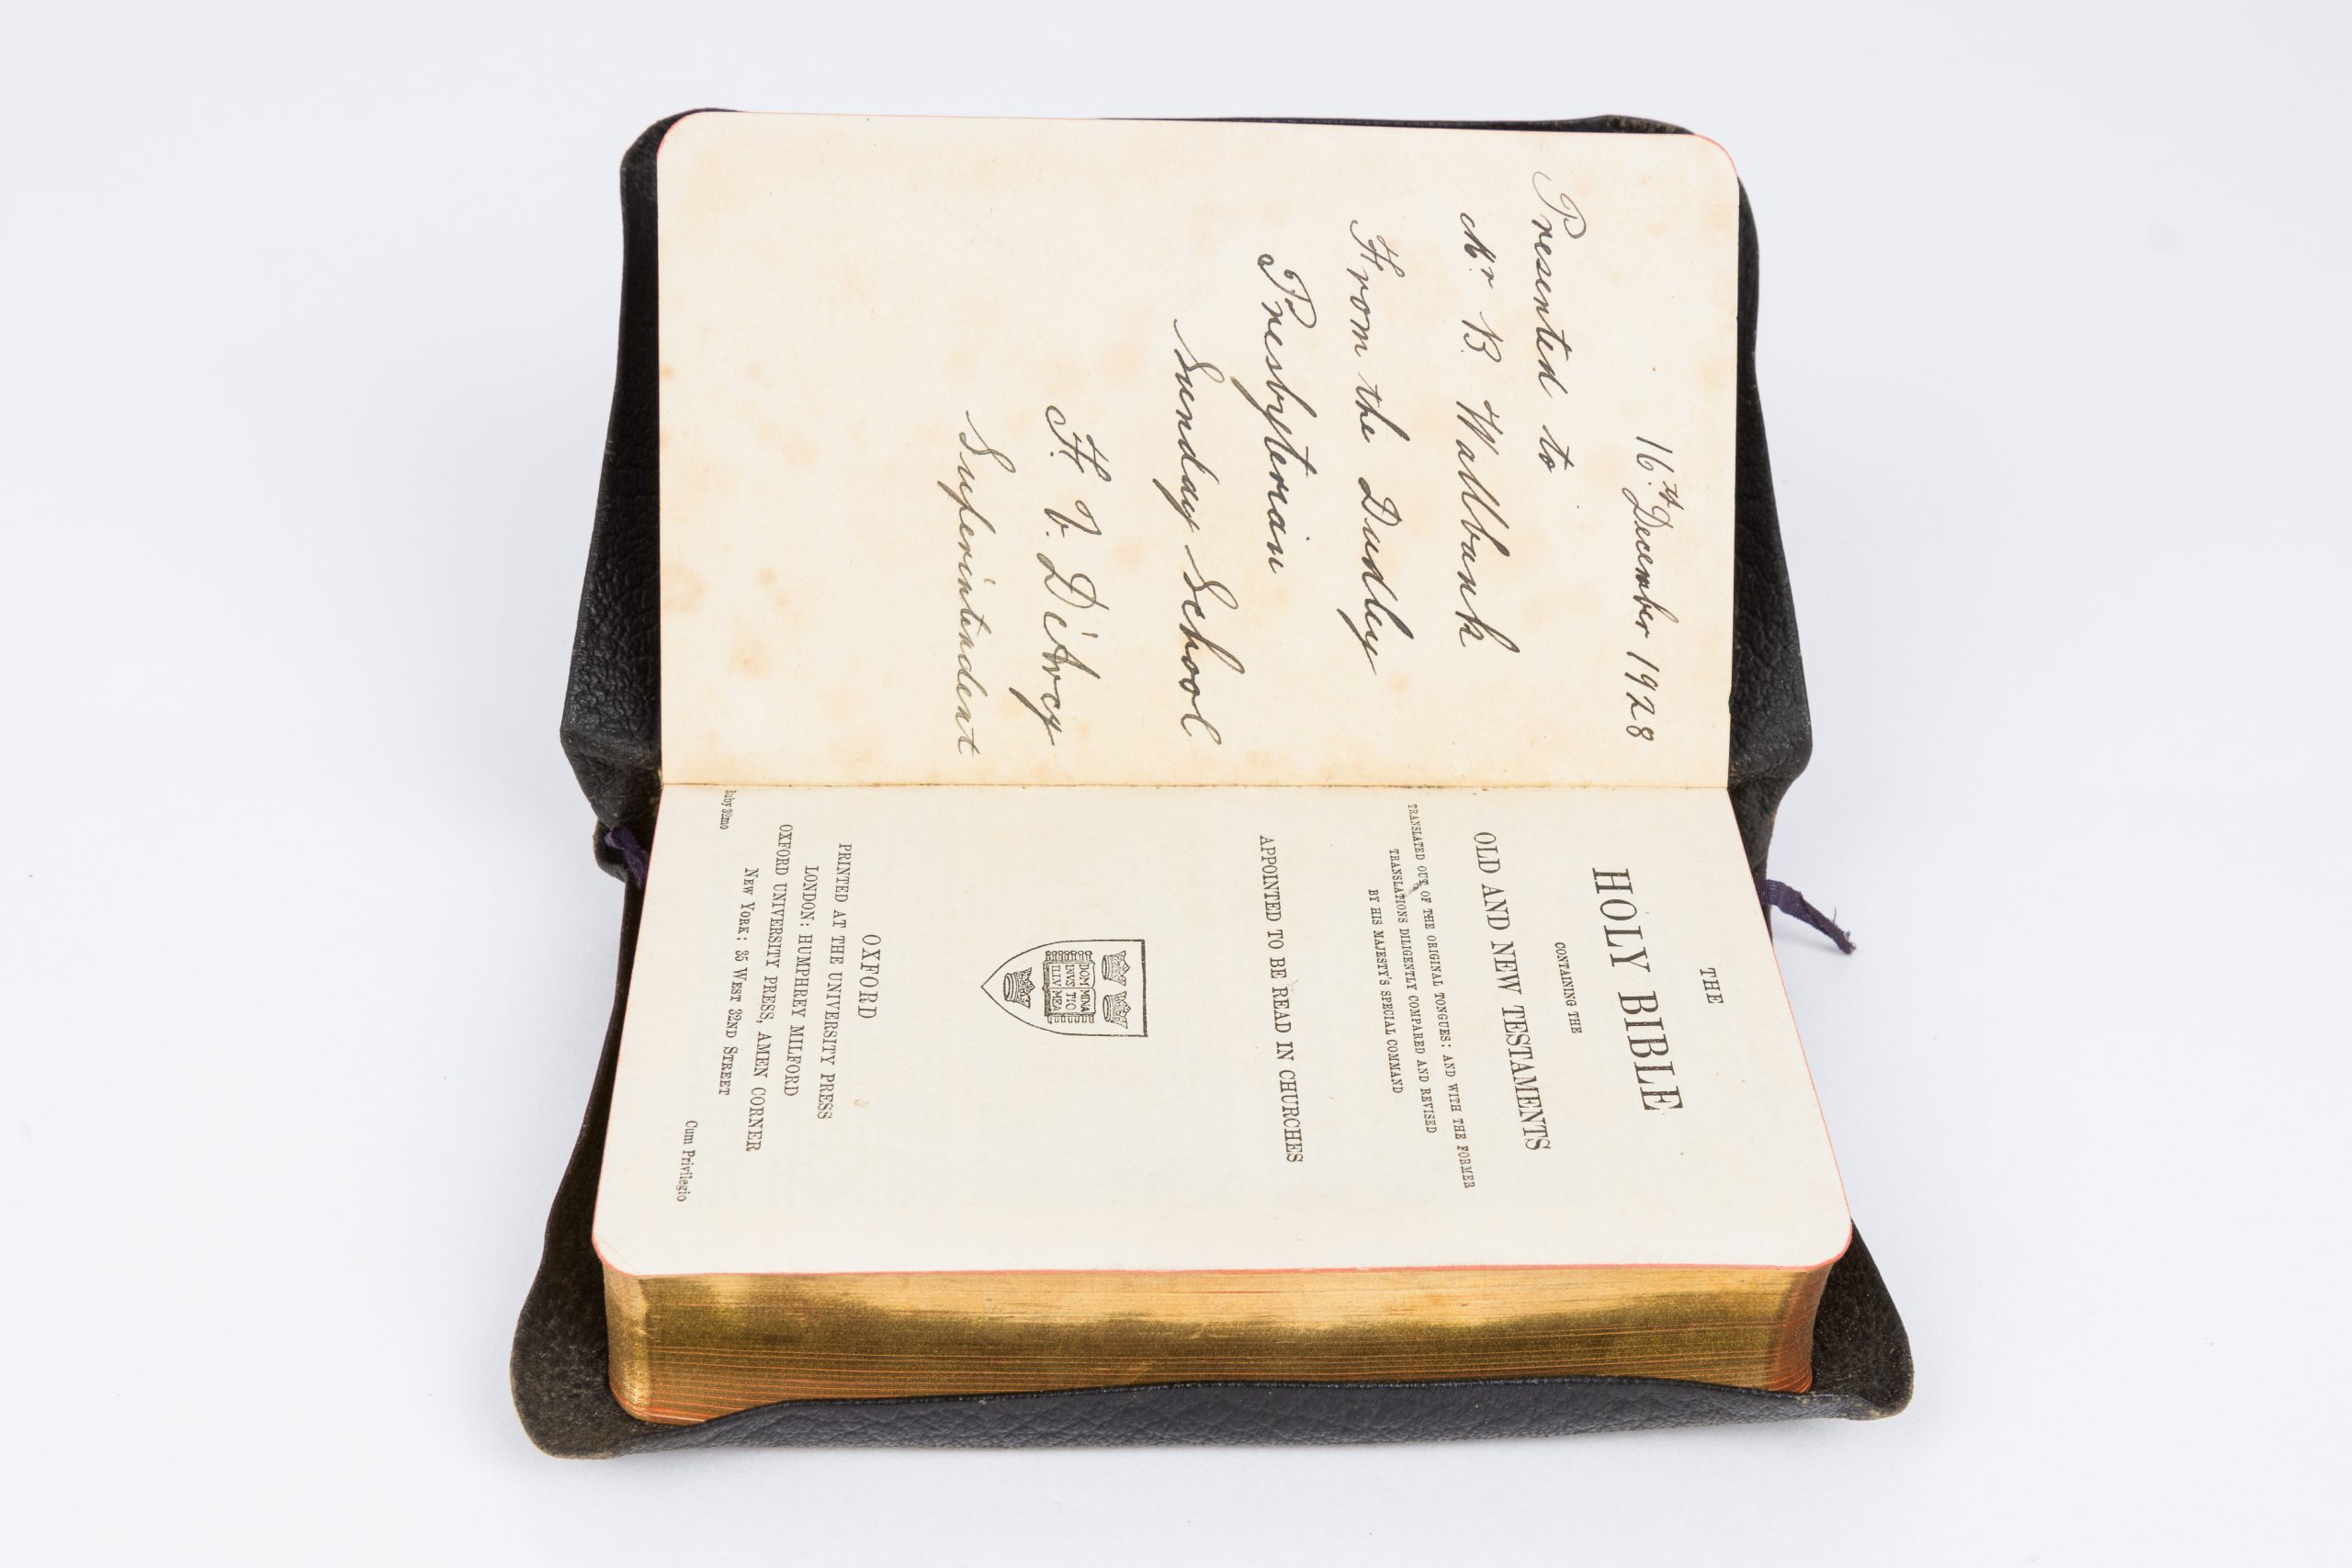 16th December 1928
Presented to
Mr. B. Wallbank
From the Dudley
Presbyterian
Sunday School
H. V. D'Arcy
Superintendent
THE
HOLY BIBLE
CONTAINING THE
OLD AND NEW TESTAMENTS
TRANSLATED OUT OF THE ORIGINAL TONGUES: AND WITH THE FORMER
TRANSLATIONS DILIGENTLY COMPARED AND REVISED
BY HIS MAJESTY'S SPECIAL COMMAND
APPOINTED TO BE READ IN CHURCHES
DOMI MINA
NVS TIO
ILLV MEA
OXFORD
PRINTED AT THE UNIVERSITY PRESS
LONDON: HUMPHREY MILFORD
OXFORD UNIVERSITY PRESS, AMEN CORNER
NEW YORK: 35 WEST 32ND STREET
Ruby 32mo
Cum Privilegio